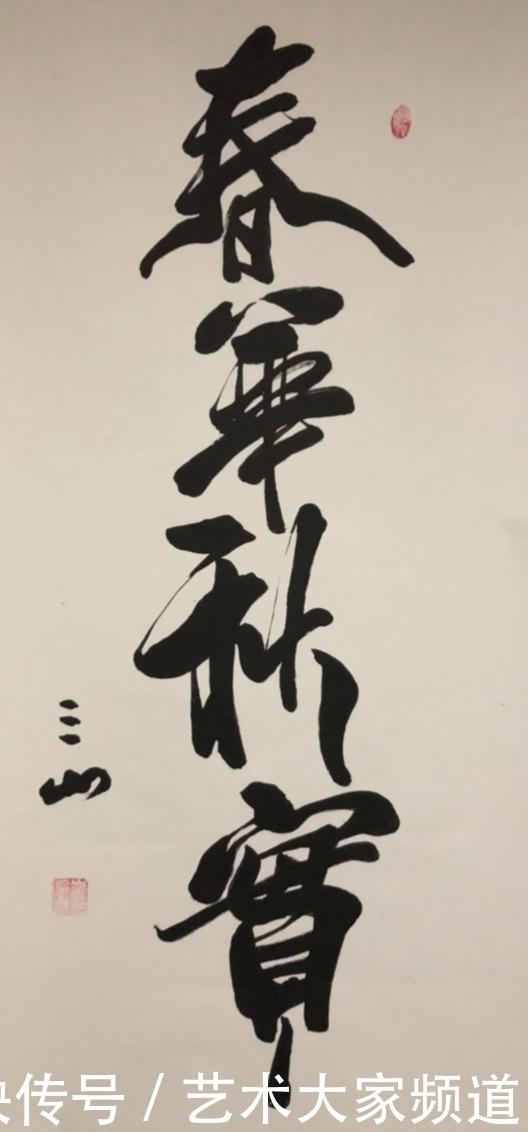 春華秋實
三山
快传号 / 艺术大家频道